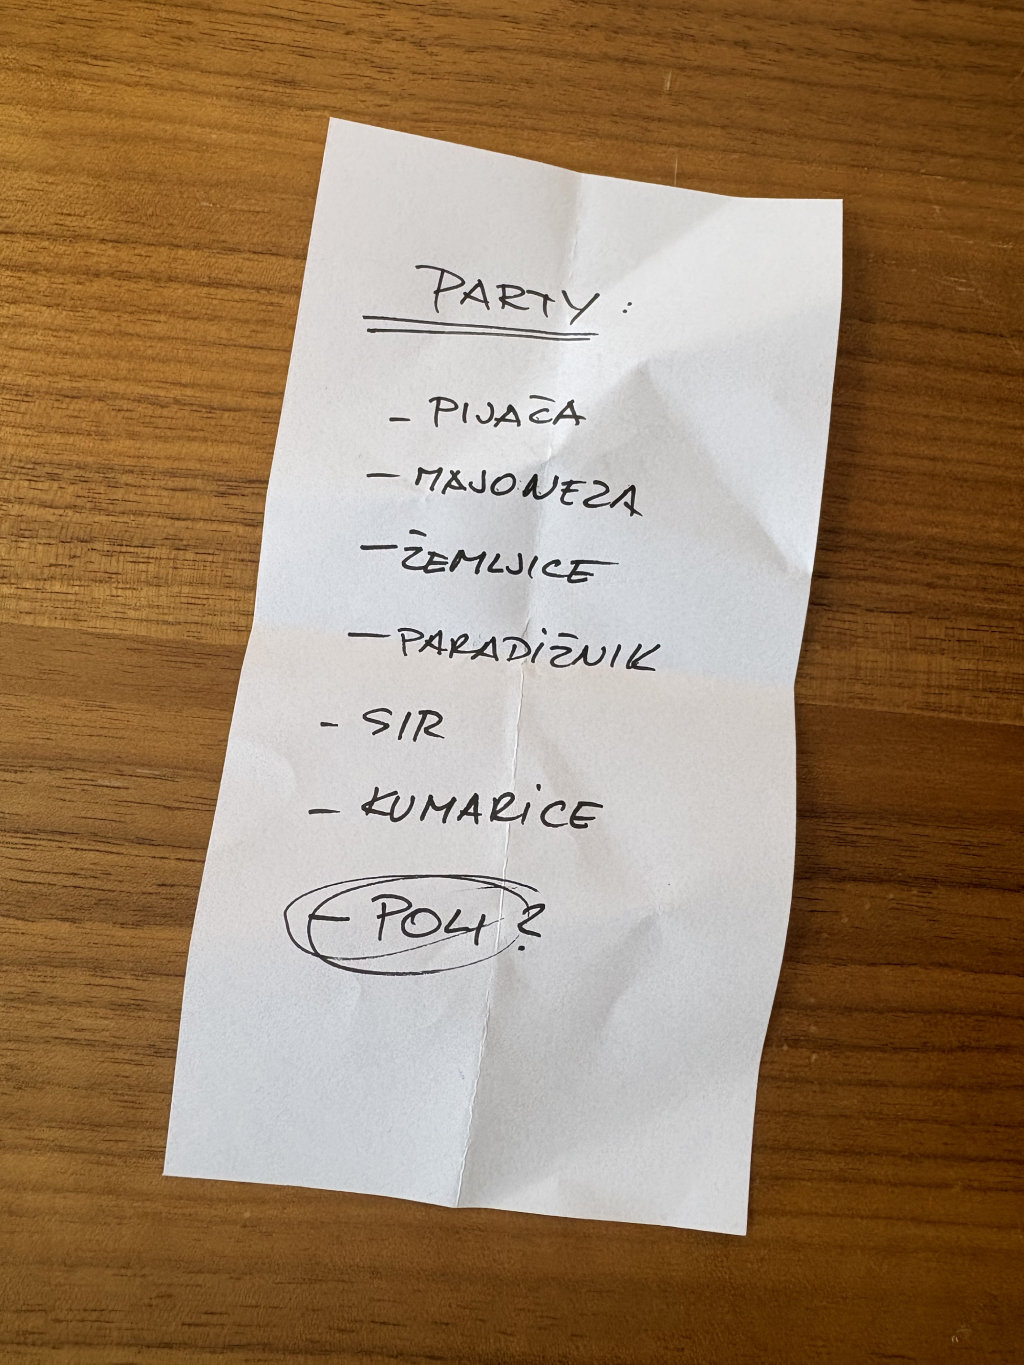 PARTY:
- PIJAČA
- MAJONEZA
- ŽEMLJICE
- PARADIŽNIK
- SIR
- KUMARICE
- POLI?